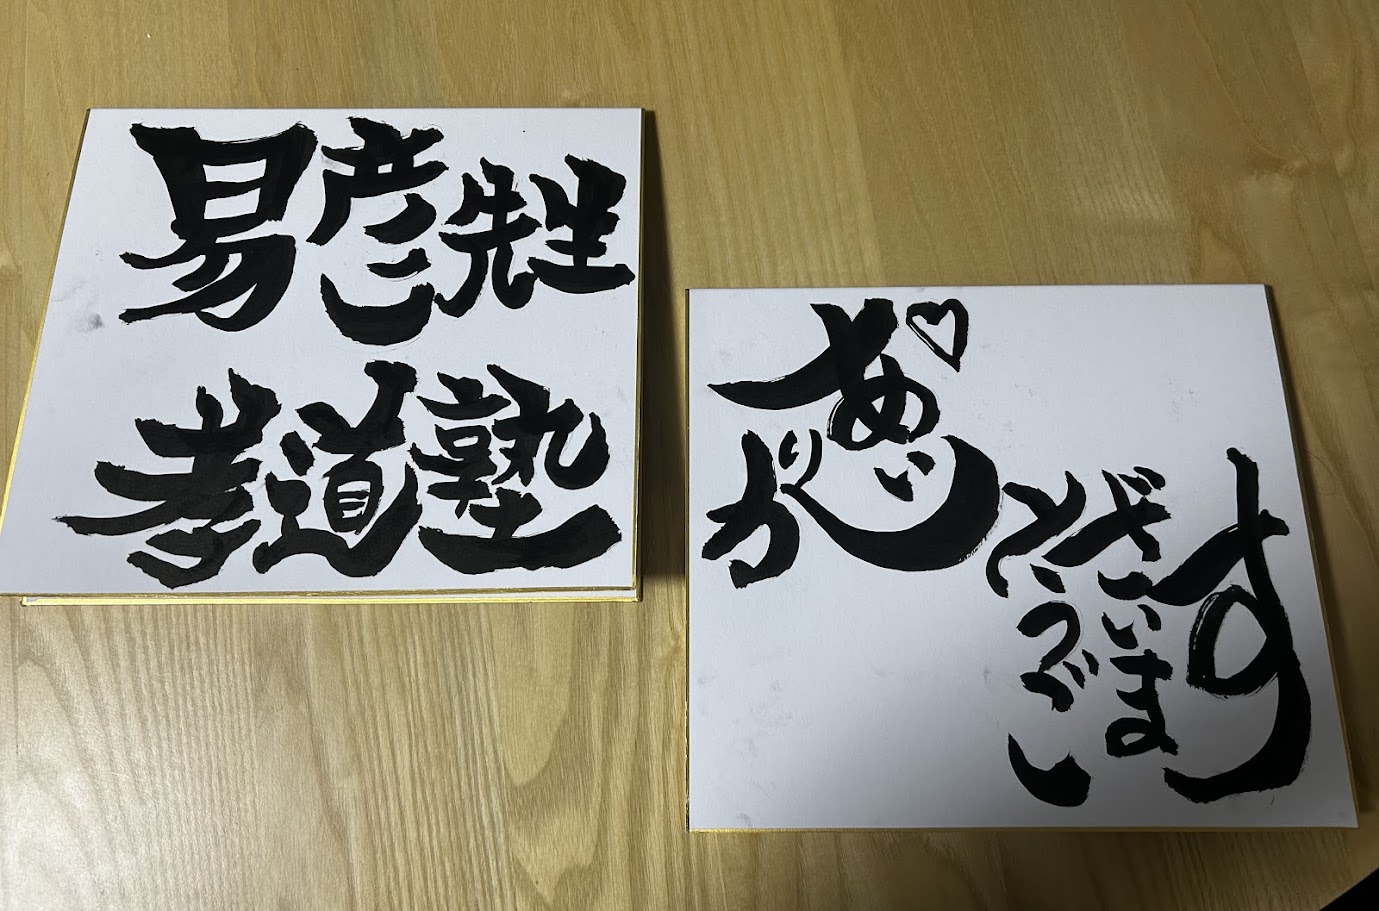 易彦先生
孝道塾
ありが
とうご
ざいま
す